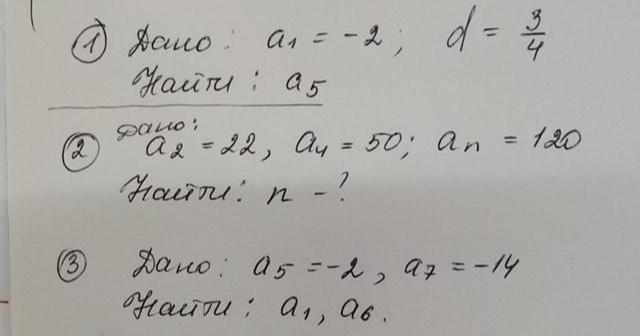 ① Дано: a₁ = -2; d = 3/4
Найти: a₅
② Дано:
a₂ = 22, a₄ = 50; aₙ = 120
Найти: n - ?
③ Дано: a₅ = -2, a₇ = -14
Найти: a₁, a₆.